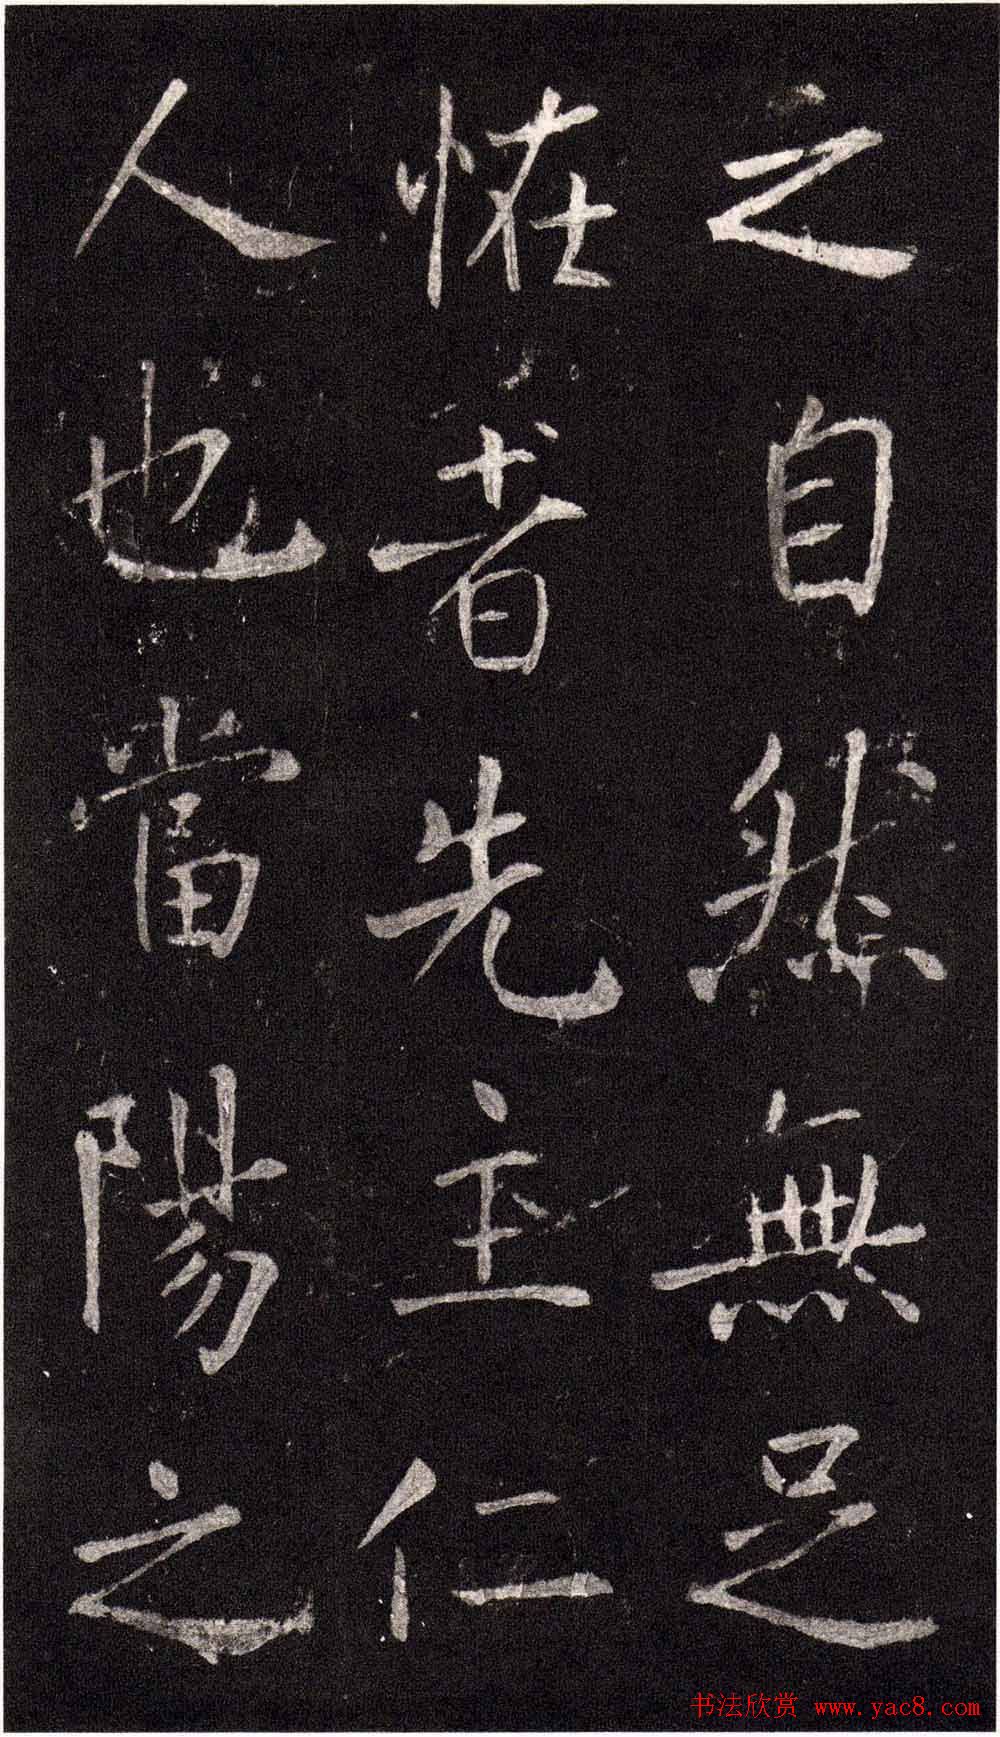 之自然無足
恠者先主仁
人也當陽之
书法欣赏 www.yac8.com